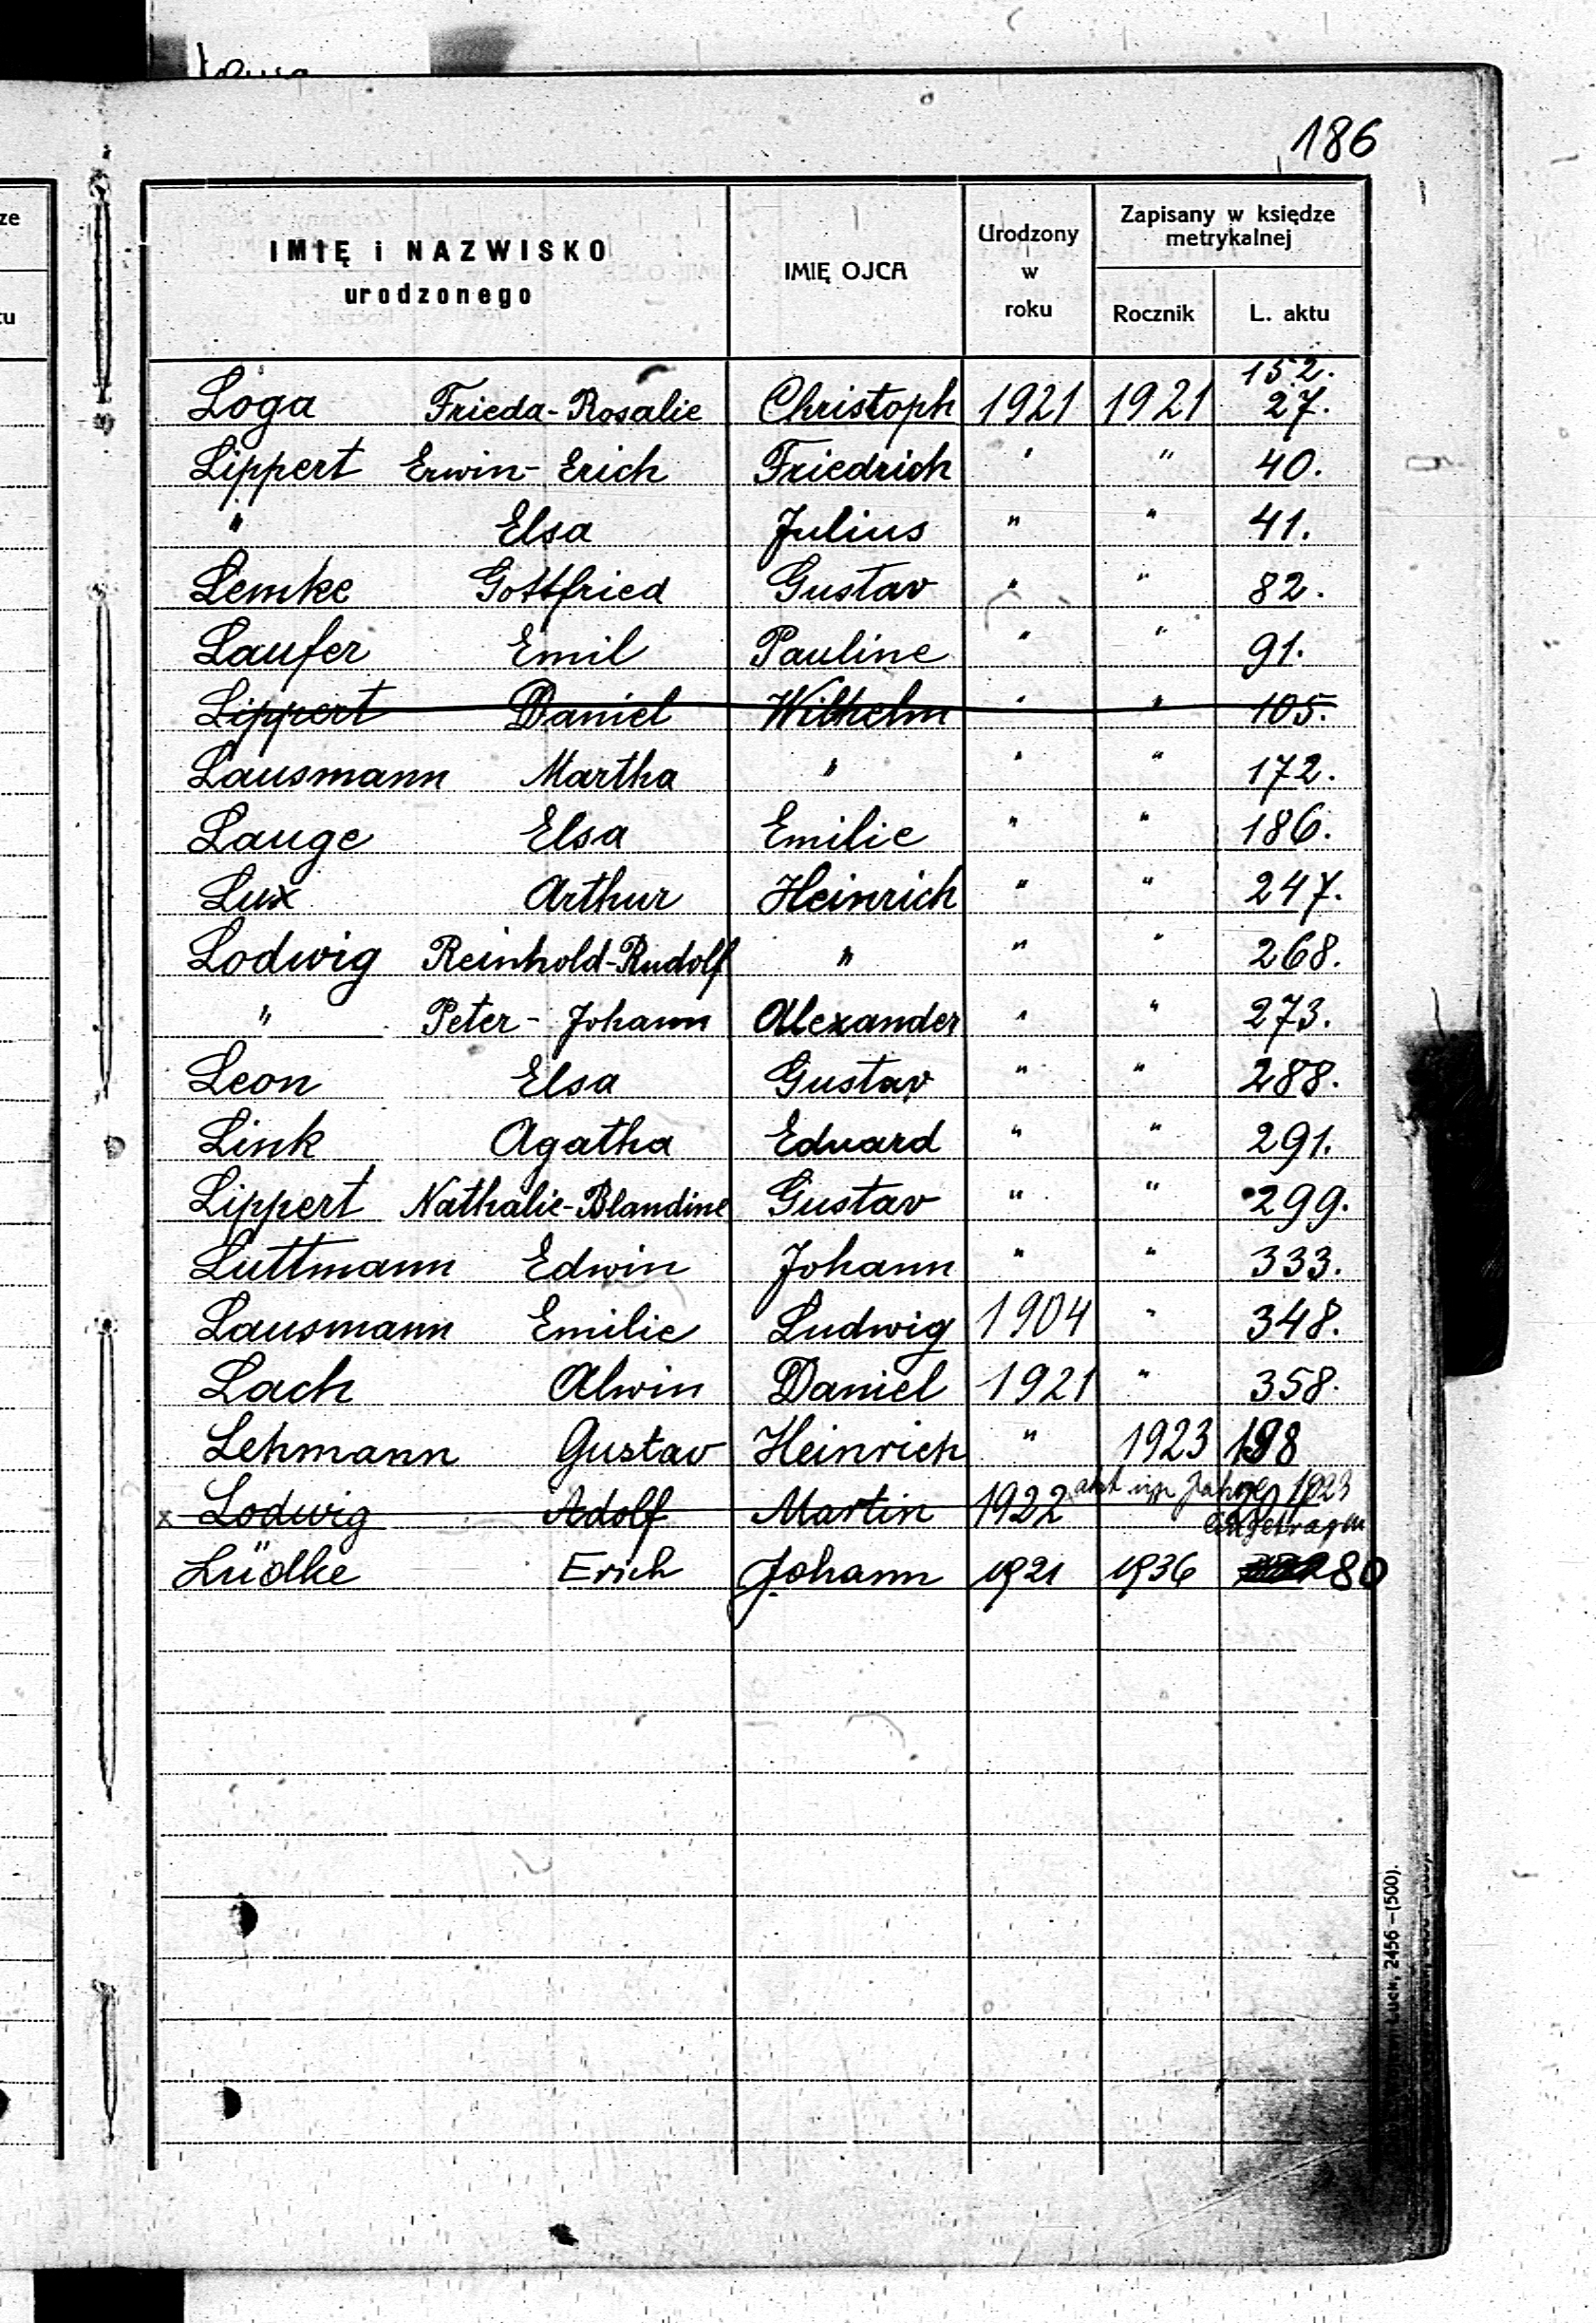 186
IMIĘ i NAZWISKO urodzonego IMIĘ OJCA Urodzony w roku Zapisany w księdze metrykalnej
Rocznik L. aktu
152.
Loga Frieda-Rosalie Christoph 1921 1921 27.
Lippert Erwin-Erich Friedrich " " 40.
" Elsa Julius " " 41.
Lemke Gottfried Gustav " " 82.
Laufer Emil Pauline " " 91.
Lippert Daniel Wilhelm " " 105.
Lausmann Martha " " " 172.
Lauge Elsa Emilie " " 186.
Lux Arthur Heinrich " " 247.
Lodwig Reinhold-Rudolf " " " 268.
" Peter-Johann Alexander " " 273.
Leon Elsa Gustav " " 288.
Link Agatha Eduard " " 291.
Lippert Nathalie-Blandine Gustav " " 299.
Luttmann Edwin Johann " " 333.
Lausmann Emilie Ludwig 1904 " 348.
Lach Alwin Daniel 1921 " 358.
Lehmann Gustav Heinrich " 1923 198
x Lodwig Adolf Martin 1922 im Jahre 1923
eingetragen
Lüdke Erich Johann 1921 1936 80
2456 —(500).
ze
tu